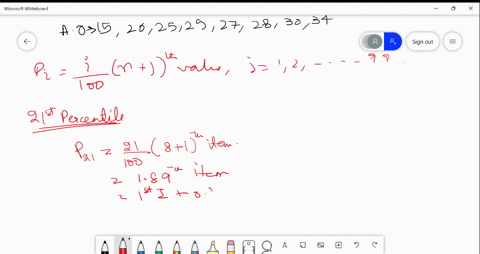 Microsoft Whiteboard
A.O⇒ 15, 20, 25, 29, 27, 28, 30, 34
Sign out
Pi = i/100 (n+1)th value, i = 1, 2, ----- 99.
21st Percentile
P21 = 21/100 (8+1)th item.
= 1.89th item
= 1st I + 0.